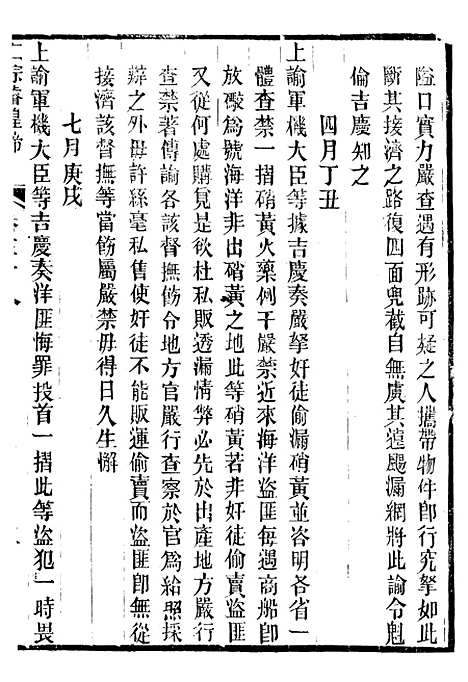 隘口實力嚴查遇有形跡可疑之人攜帶物件卽行究拏如此
斷其接濟之路復四面兜截自無虞其遠颺漏網將此諭令魁
倫吉慶知之
四月丁丑
上諭軍機大臣等據吉慶奏嚴拏奸徒偷漏硝黃並咨明各省一
體查禁一摺硝黃火藥例干嚴禁近來海洋盜匪每遇商船卽
放礮爲號海洋非出硝黃之地此等硝黃若非奸徒偷賣盜匪
又從何處購覓是欲杜私販透漏情弊必先於出產地方嚴行
查禁著傳諭各該督撫飭令地方官嚴行查察於官爲給照採
辦之外毋許絲毫私售使奸徒不能販運偷賣而盜匪卽無從
接濟該督撫等當飭屬嚴禁毋得日久生懈
七月庚戌
上諭軍機大臣等吉慶奏洋匪悔罪投首一摺此等盜犯一時畏
仁宗睿皇帝